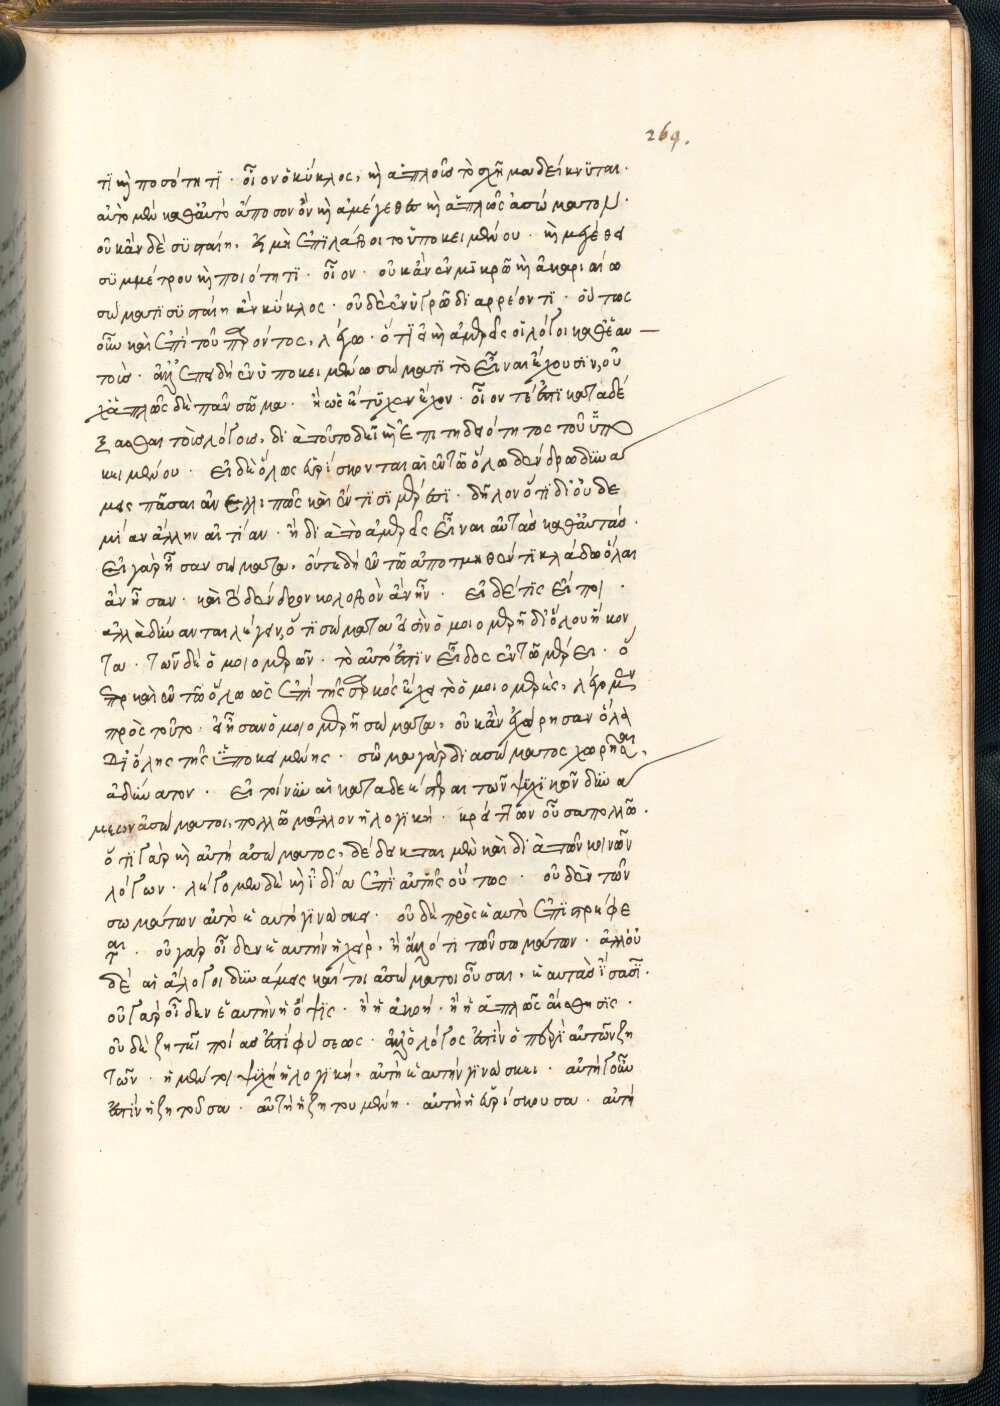 264.
τι καὶ ποσότητι · οἷον ὁ κύκλος, καὶ ἁπλῶς τὸ σχῆμα δείκνυται ·
αὐτὸ μὲν καθ' αὑτὸ ἄποσον ὂν καὶ ἀμέγεθες καὶ ἁπλῶς ἀσώματον ·
οὐκ ἂν δὲ συσταίη, εἰ μὴ ἐπιλάβοιτο ὑποκειμένου · καὶ μεγέθει
συμμέτρου καὶ ποιότητι · οἷον · οὐκ ἂν ἐν μικρῷ καὶ ἀκαριαίῳ
σώματι συσταίη ἂν κύκλος · οὐδὲ ἐν ὑγρῷ διαρρέοντι · οὕτως
οὖν καὶ ἐπὶ τοῦ παρόντος, λέγω · ὅτι εἰ καὶ ἀμερεῖς οἱ λόγοι καθ' ἑαυ
τούς · ἀλλ' ἐπειδὴ ἐν ὑποκειμένῳ σώματι τὸ εἶναι ἔχουσιν, οὐ
χ' ἁπλῶς δὲ πᾶν σῶμα · ἢ ὡς ἔτυχεν ἔχον · οἷον τέ ἐστι καταδέ
ξασθαι τοὺς λόγους, διὰ τοῦτο δεῖ καὶ ἐπιτηδειότητος τοῦ ὑπο
κειμένου · εἰ δὲ ὅλως εὑρίσκονται αἱ ἐν τῷ ὅλῳ δένδρῳ δυνά
μεις πᾶσαι ἀνελλιπῶς καὶ ἐν τισι μέρεσι · δῆλον ὅτι δι' οὐδε
μίαν ἄλλην αἰτίαν · ἢ διὰ τὸ ἀμερεῖς εἶναι αὐτὰς καθ' αὑτάς ·
εἰ γὰρ ἦσαν σώματα, οὔτε δὴ ἐν τῷ ἀποτμηθέντι κλάδῳ ὅλαι
ἂν ἦσαν · καὶ τὸ δένδρον κολοβὸν ἂν ἦν · εἰ δέ τις εἴποι ·
ἀλλὰ δύνανται λέγειν, ὅτι σώματα εἰσὶν ὁμοιομερῆ δι' ὅλου ἥκον
τα · τῶν δὲ ὁμοιομερῶν · τὸ αὐτό ἐστιν εἶδος ἐν τῷ μέρει · ὅ
περ καὶ ἐν τῷ ὅλῳ ὡς ἐπὶ τῆς σαρκὸς ἔχει τὸ ὁμοιομερές, λέγομεν
πρὸς τοῦτο · εἰ ἦσαν ὁμοιομερῆ σώματα, οὐκ ἂν ἐχώρησαν ὅλα
δι' ὅλης τῆς ὑποκειμένης · σῶμα γὰρ διὰ σώματος χωρῆσαι,
ἀδύνατον · εἰ τοίνυν αἱ καταδεέστεραι τῶν ψυχικῶν δυνά
μεων ἀσώματοι, πολλῷ μᾶλλον ἡ λογικὴ · κρείττων οὖσα πολλῷ ·
ὅτι γὰρ καὶ αὐτὴ ἀσώματος, δέδεικται μὲν καὶ διὰ τῶν κοινῶν
λόγων · λέγομεν δὲ καὶ ἰδίᾳ ἐπὶ αὐτῆς οὕτως · οὐδὲν τῶν
σωμάτων αὐτὸ ἑαυτὸ γινώσκει · οὐδὲ πρὸς ἑαυτὸ ἐπιστρέφε
ται · οὐ γὰρ οἶδεν ἑαυτὴν ἡ χείρ, ἢ ἄλλο τι τῶν σωμάτων · ἀλλ' οὐ
δὲ αἱ ἄλογοι δυνάμεις καίτοι ἀσώματοι οὖσαι, ἑαυτὰς ἴσασι ·
οὐ γὰρ οἶδεν ἑαυτὴν ἡ ὄψις · ἢ ἡ ἀκοή · ἢ ἡ ἁπλῶς αἴσθησις ·
οὐδὲ ζητεῖ ποίας ἐστὶ φύσεως · ἀλλ' ὁ λόγος ἐστὶν ὁ περὶ αὐτῶν ζη
τῶν · ἡ μέντοι ψυχὴ ἡ λογικὴ, αὐτὴ ἑαυτὴν γινώσκει · αὐτὴ γοῦν
ἐστὶν ἡ ζητοῦσα · αὐτὴ ἡ ζητουμένη · αὐτὴ ἡ εὑρίσκουσα · αὐτὴ